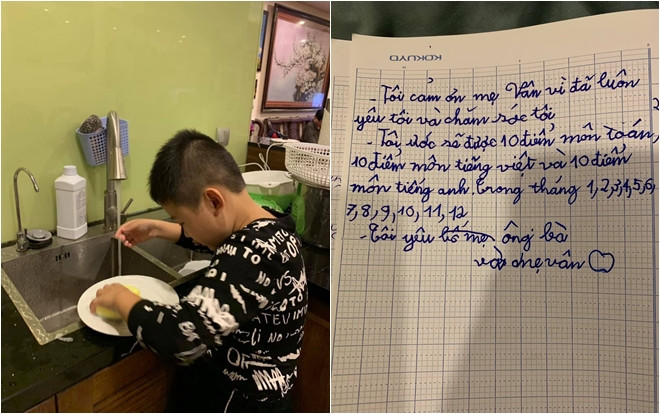 KOKUYO
Tôi cảm ơn mẹ Vân vì đã luôn
yêu tôi và chăm sóc tôi
- Tôi ước sẽ được 10 điểm môn toán,
10 điểm môn tiếng việt va 10 điểm
môn tiếng anh trong tháng 1,2,3,4,5,6,
7,8,9,10,11,12
- Tôi yêu bố mẹ, ông bà
và mẹ vân